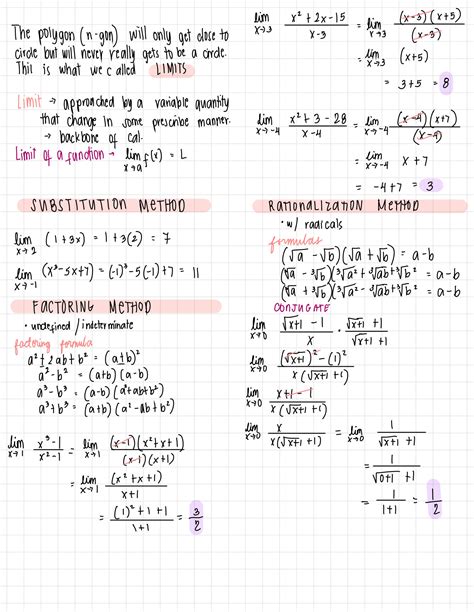 The polygon (n-gon) will only get close to
circle but will never really gets to be a circle.
This is what we called LIMITS
Limit → approached by a variable quantity
that change in some prescribe manner.
→ backbone of cal.
Limit of a function → lim x→a f(x) = L
SUBSTITUTION METHOD
lim x→2 (1+3x) = 1+3(2) = 7
lim x→-1 (x²-5x+7) = (-1)²-5(-1)+7 = 11
FACTORING METHOD
• undefined / indeterminate
factoring formula
a² ± 2ab + b² = (a±b)²
a² - b² = (a+b)(a-b)
a³ - b³ = (a-b)(a²+ab+b²)
a³ + b³ = (a+b)(a²-ab+b²)
lim x→1 x³-1 / x²-1 = lim x→1 (x-1)(x²+x+1) / (x-1)(x+1)
= lim x→1 (x²+x+1) / x+1
= (1)²+1+1 / 1+1 = 3/2
lim x→3 x²+2x-15 / x-3 = lim x→3 (x-3)(x+5) / (x-3)
= lim x→3 (x+5)
= 3+5 = 8
lim x→-4 x²+3-28 / x-4 = lim x→-4 (x-4)(x+7) / (x-4)
= lim x→-4 x+7
= -4+7 = 3
RATIONALIZATION METHOD
• w/ radicals
formulas
(√a - √b)(√a + √b) = a-b
(∛a - ∛b)(∛a² + ∛ab + ∛b² = a-b
(∛a + ∛b)(∛a² - ∛ab + ∛b² = a+b
CONJUGATE
lim x→0 √x+1 - 1 / x · √x+1 +1 / √x+1 +1
lim x→0 (√x+1)² - (1)² / x(√x+1 +1)
lim x→0 x+1-1 / x(√x+1 +1)
lim x→0 x / x(√x+1 +1) = lim x→0 1 / √x+1 +1
= 1 / √0+1 +1
= 1 / 1+1 = 1/2